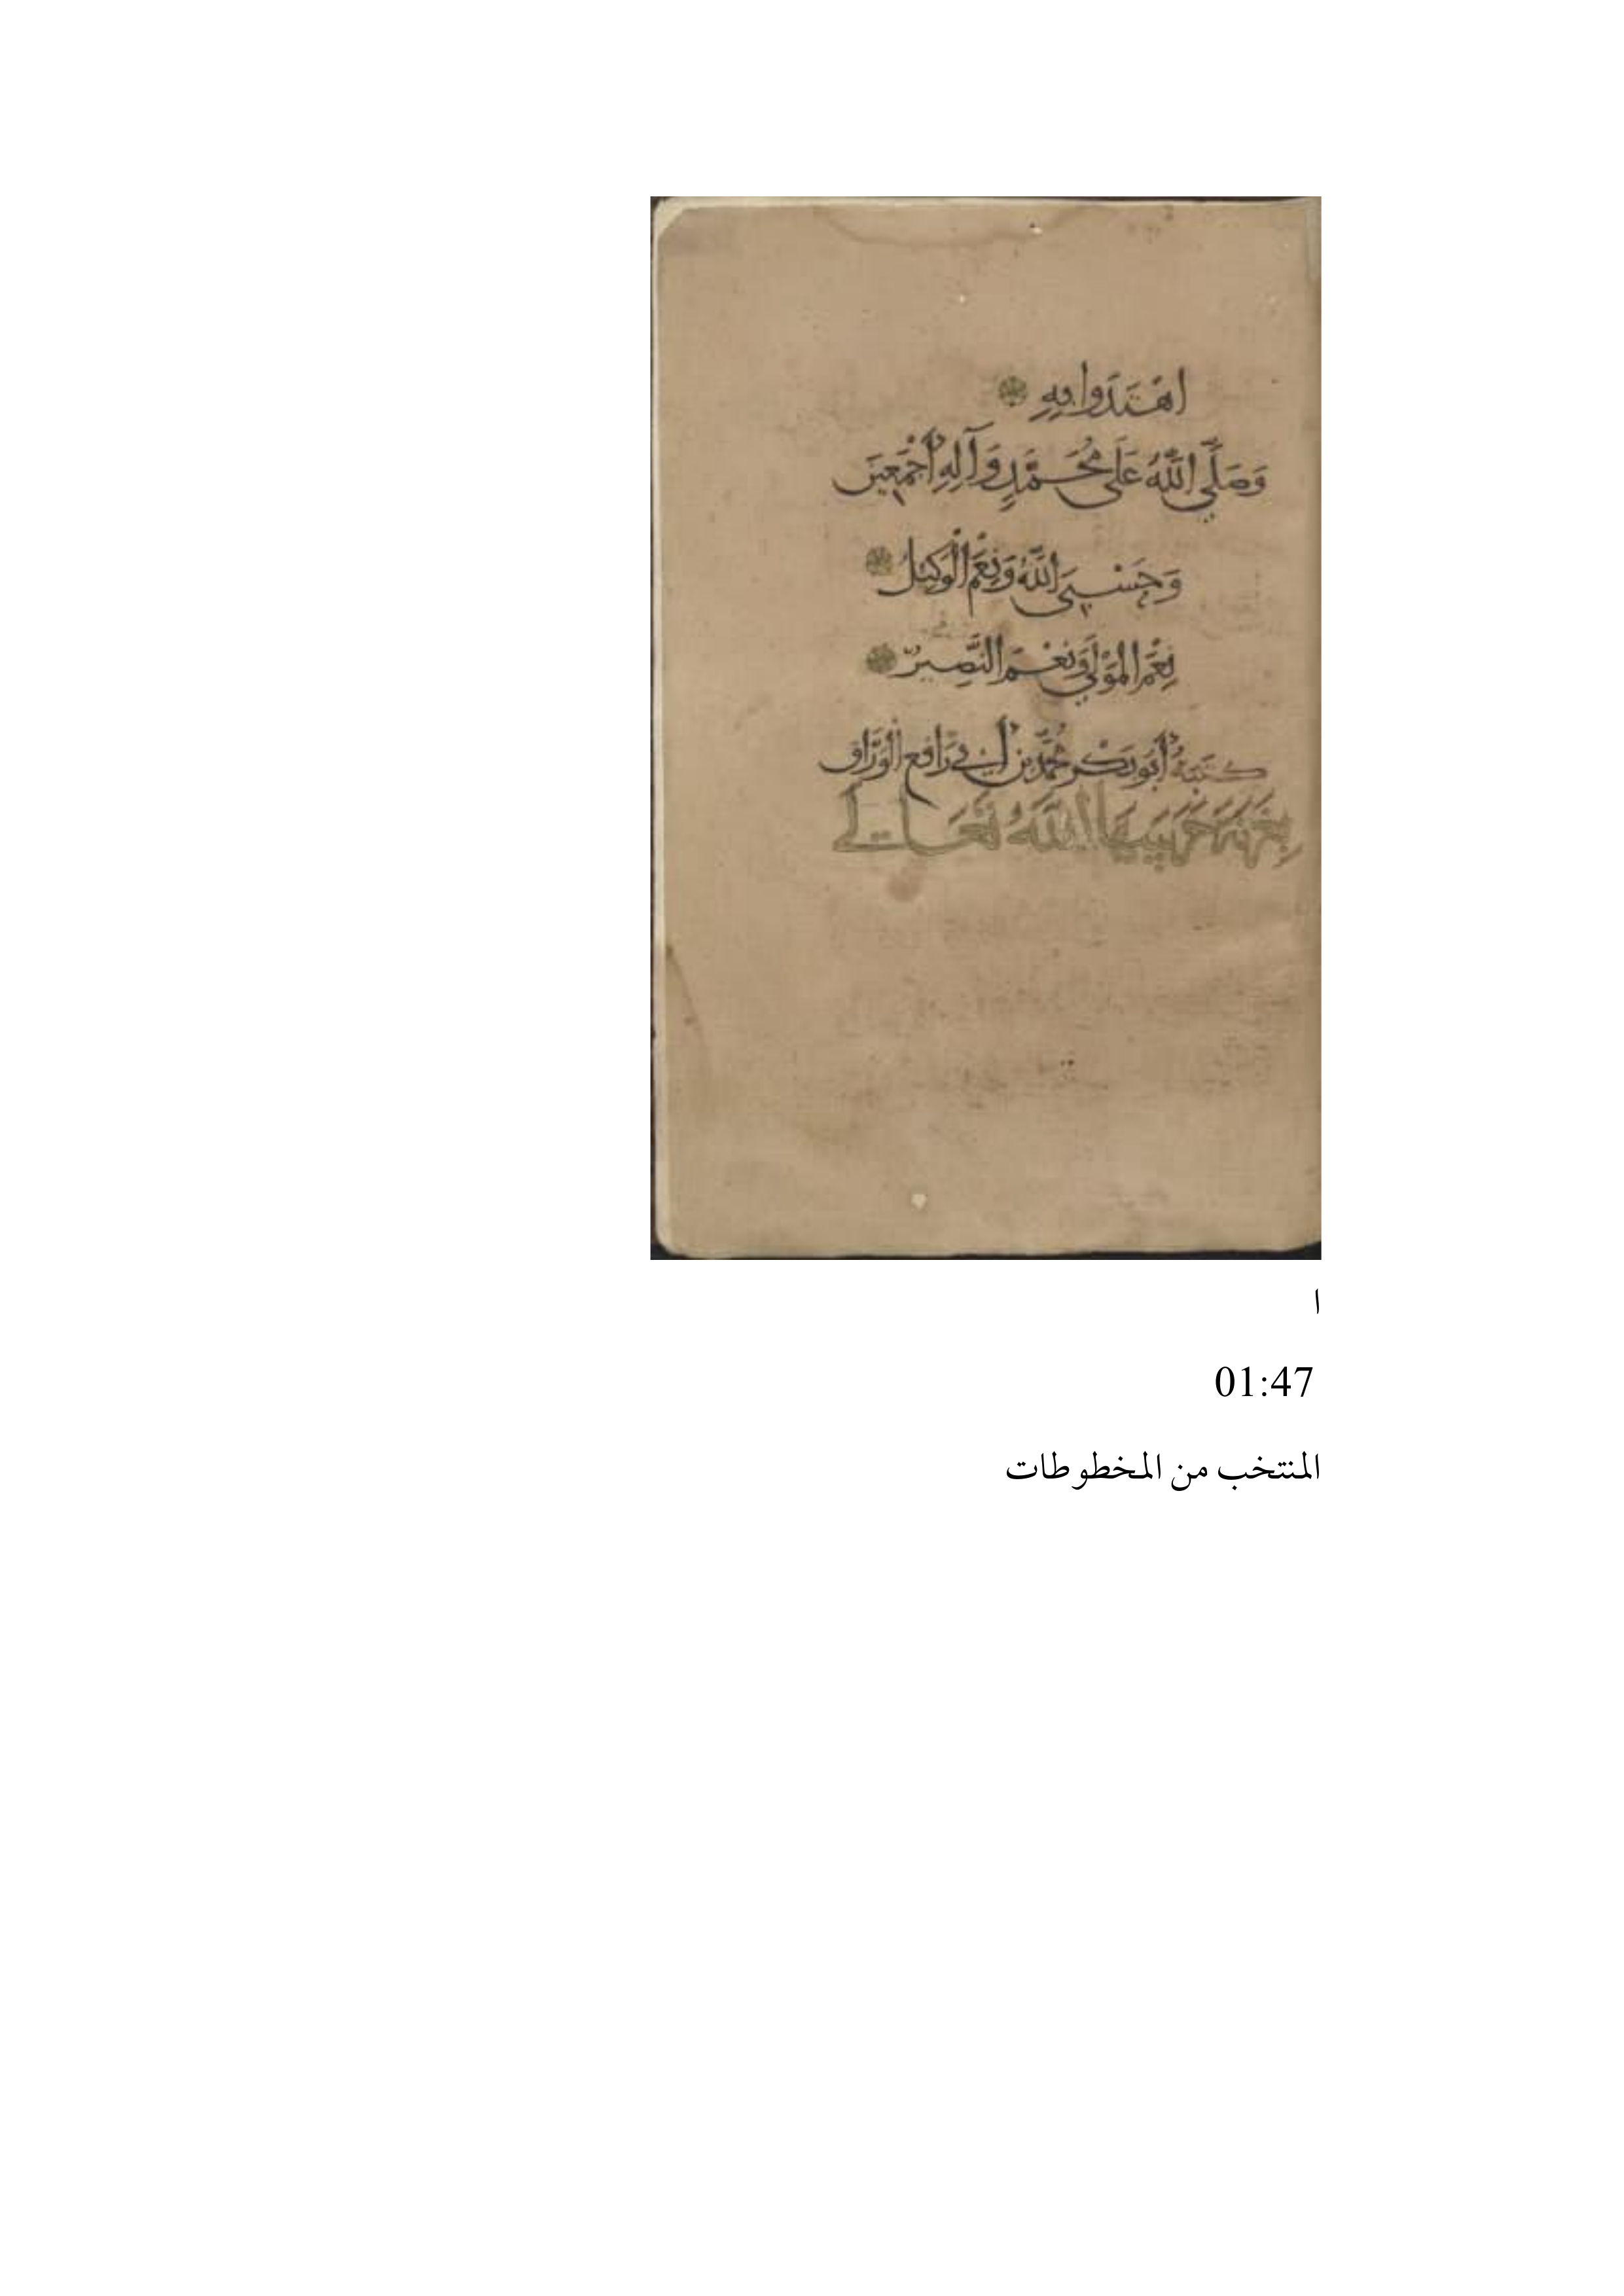 اهْتَدَوا بِهِ
وَصَلَّى اللَّهُ عَلَى مُحَمَّدٍ وَآلِهِ أَجْمَعِينَ
وَحَسْبِيَ اللَّهُ وَنِعْمَ الْوَكِيلُ
نِعْمَ الْمَوْلَى وَنِعْمَ النَّصِيرُ
كَتَبَهُ أَبُو بَكْر مُحَمَّد بن أَبِي رَافِع الْوَرَّاق
اللَّهُ تَعَالَى
ا
01:47
المنتخب من المخطوطات